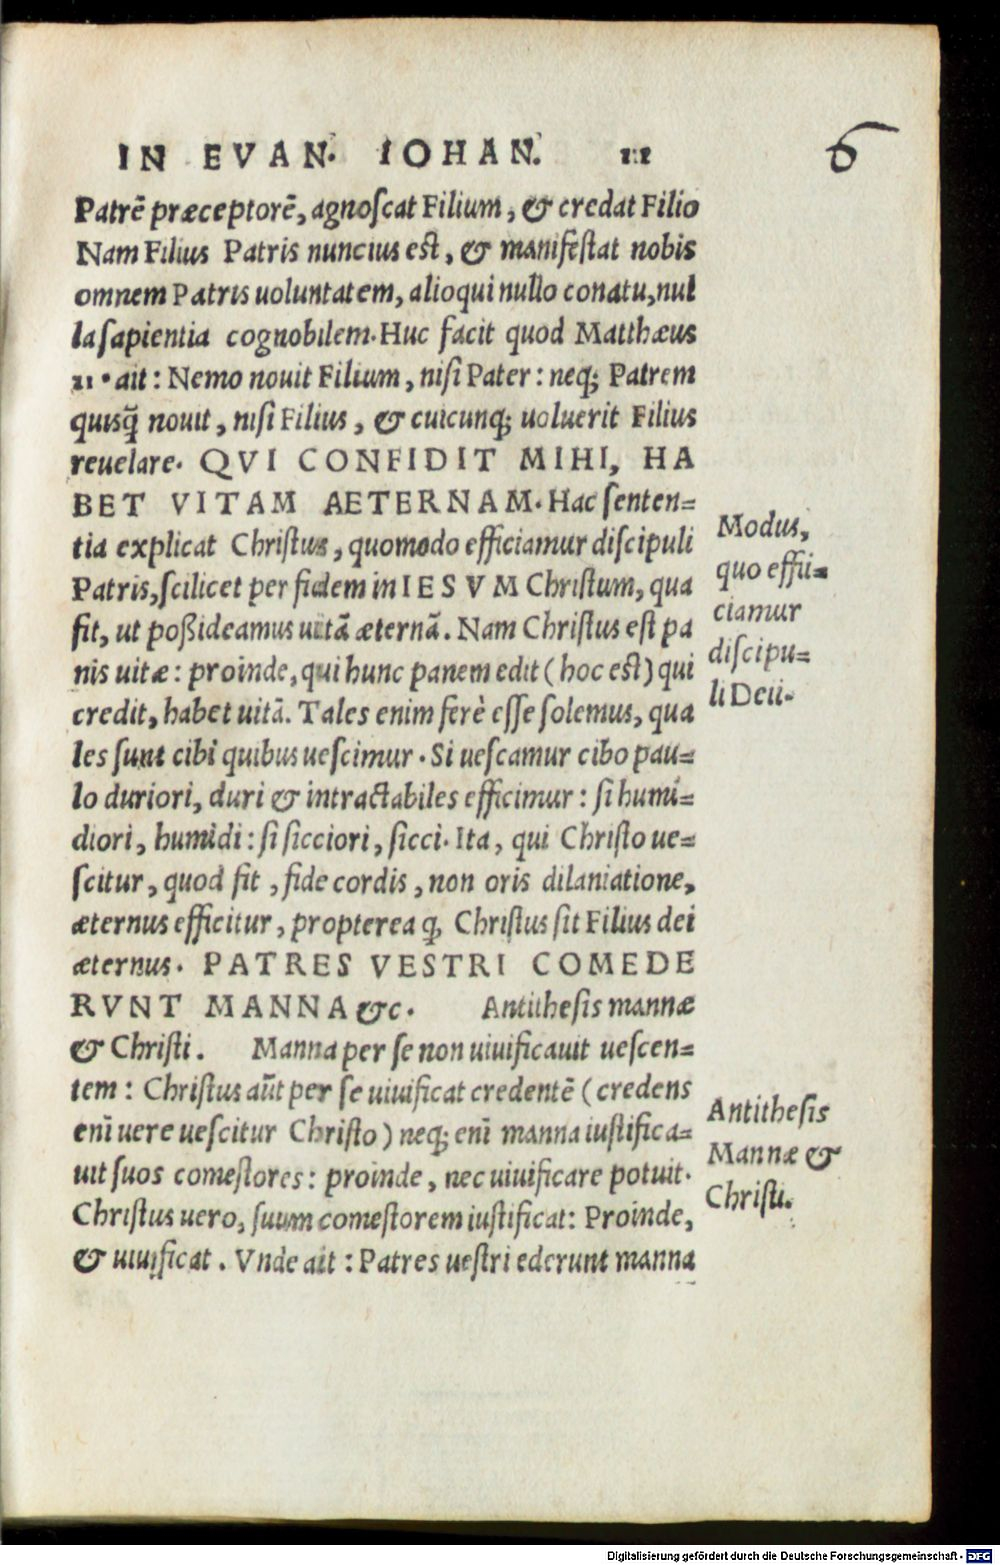 IN EVAN. IOHAN. 11
6
Patrẽ præceptorẽ, agnoſcat Filium, & credat Filio
Nam Filius Patris nuncius est, & manifeſtat nobis
omnem Patris uoluntatem, alioqui nullo conatu, nul
la ſapientia cognobilem. Huc facit quod Matthæus
11. ait: Nemo nouit Filium, niſi Pater: neq; Patrem
quisq̃ nouit, niſi Filius, & cuicunq; uoluerit Filius
reuelare. QVI CONFIDIT MIHI, HA
BET VITAM AETERNAM. Hac ſenten=
tia explicat Chriſtus, quomodo efficiamur diſcipuli
Patris, ſcilicet per fidem in IESVM Chriſtum, qua
fit, ut poßideamus uitã æternã. Nam Chriſtus eſt pa
nis uitæ: proinde, qui hunc panem edit (hoc est) qui
credit, habet uitã. Tales enim ferè eſſe ſolemus, qua
les ſunt cibi quibus ueſcimur. Si ueſcamur cibo pau=
lo duriori, duri & intractabiles efficimur: ſi humi=
diori, humidi: ſi ſicciori, ſicci. Ita, qui Chriſto ue=
ſcitur, quod fit, fide cordis, non oris dilaniatione,
æternus efficitur, propterea q, Chriſtus ſit Filius dei
æternus. PATRES VESTRI COMEDE
RVNT MANNA &c. Antitheſis mannæ
& Chriſti. Manna per ſe non uiuificauit ueſcen=
tem: Chriſtus aũt per ſe uiuificat credentẽ (credens
enĩ uere ueſcitur Chriſto) neq; enĩ manna iuſtifica=
uit ſuos comeſtores: proinde, nec uiuificare potuit.
Chriſtus uero, ſuum comeſtorem iuſtificat: Proinde,
& uiuificat. Vnde ait: Patres ueſtri ederunt manna
Modus,
quo effii=
ciamur
diſcipu=
li Deii.
Antitheſis
Mannæ &
Chriſti.
Digitalisierung gefördert durch die Deutsche Forschungsgemeinschaft - DFG